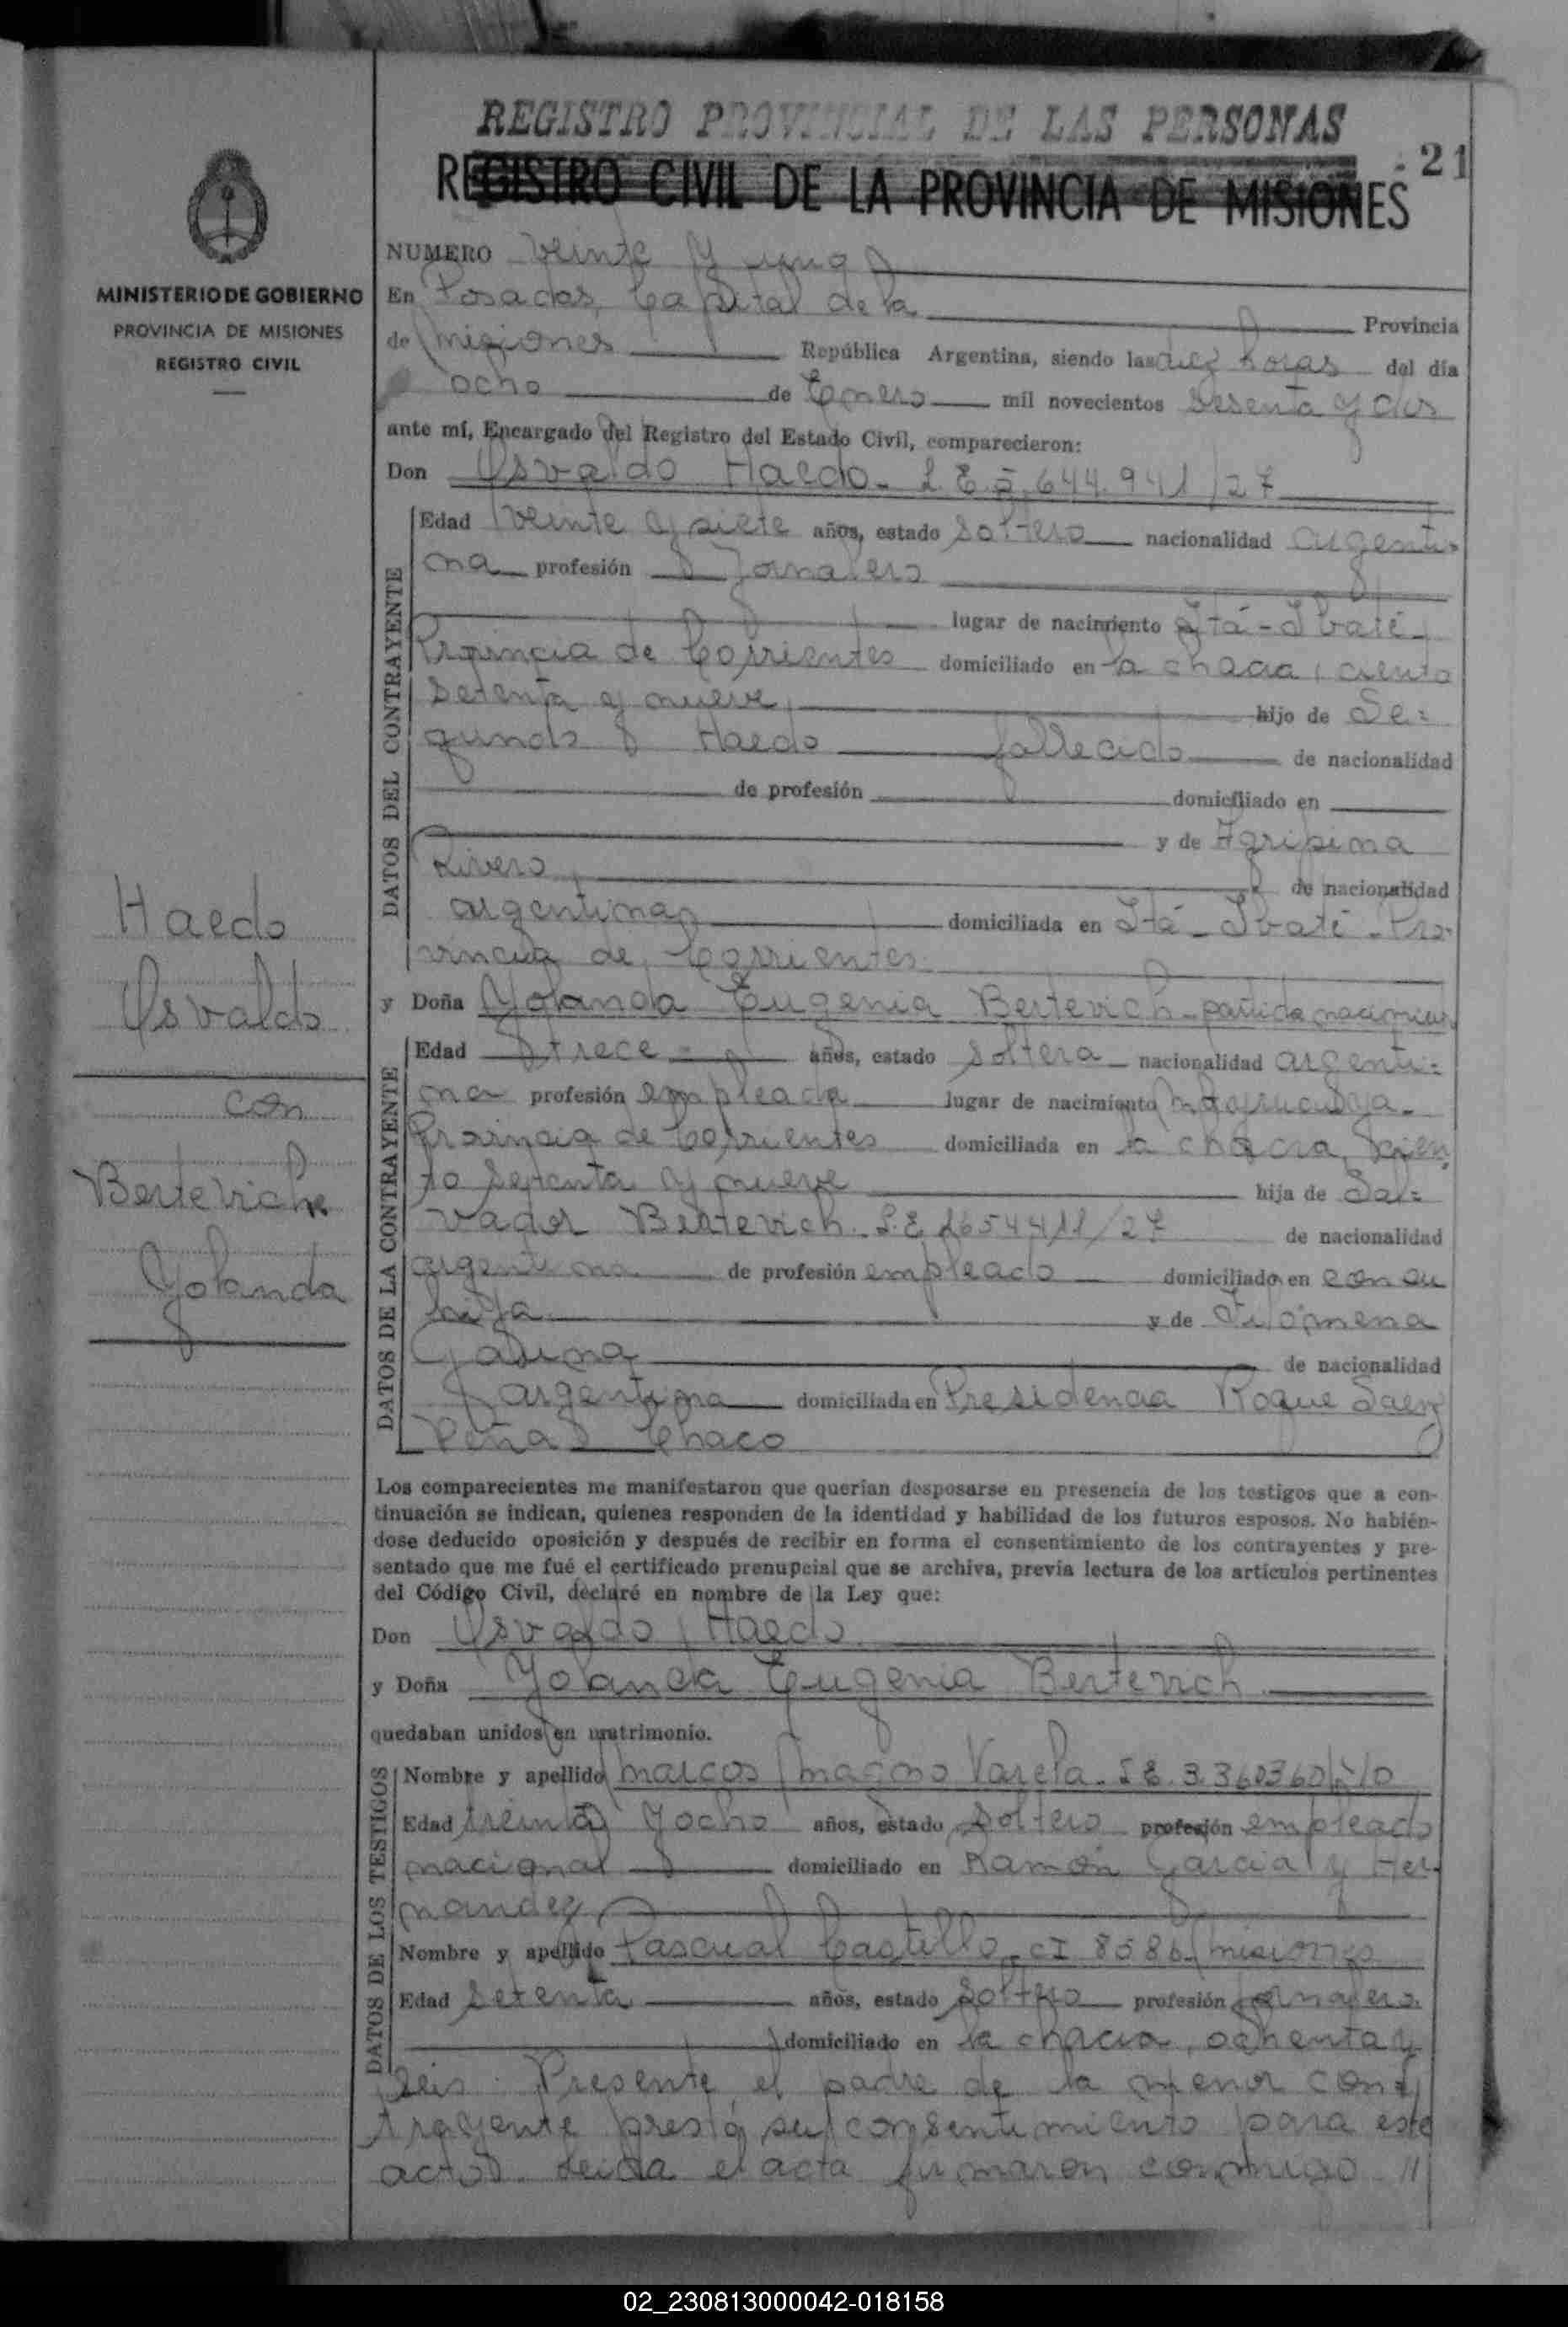 REGISTRO PROVINCIAL DE LAS PERSONAS
REGISTRO CIVIL DE LA PROVINCIA DE MISIONES
21
MINISTERIO DE GOBIERNO
PROVINCIA DE MISIONES
REGISTRO CIVIL
Haedo
Osvaldo
con
Berteviche
Yolanda
NUMERO veinte y uno
En Posadas, Capital de la Provincia
de Misiones República Argentina, siendo las diez horas del día
ocho de Enero mil novecientos sesenta y dos
ante mí, Encargado del Registro del Estado Civil, comparecieron:
Don Osvaldo Haedo - L.E. 5.644.941/27
DATOS DEL CONTRAYENTE
Edad veinte y siete años, estado soltero nacionalidad argenti-
na profesión Jornalero
lugar de nacimiento Itá-Ibaté-
Provincia de Corrientes domiciliado en la chacra, ciento
setenta y nueve hijo de Se=
gundo Haedo fallecido de nacionalidad
de profesión domiciliado en
y de Agripina
Rivero de nacionalidad
argentina domiciliada en Itá-Ibaté-Pro-
vincia de Corrientes
y Doña Yolanda Eugenia Bertevich-partida
DATOS DE LA CONTRAYENTE
Edad trece años, estado soltera nacionalidad argenti=
na profesión empleada lugar de nacimiento
Provincia de Corrientes domiciliada en la chacra, cien
to setenta y nueve hija de Sal=
vador Bertevich. L.E. 1654411/27 de nacionalidad
argentina de profesión empleado domiciliado en con su
hija y de Filomena
de nacionalidad
argentina domiciliada en Presidencia Roque Saenz
Peña Chaco
Los comparecientes me manifestaron que querían desposarse en presencia de los testigos que a con-
tinuación se indican, quienes responden de la identidad y habilidad de los futuros esposos. No habién-
dose deducido oposición y después de recibir en forma el consentimiento de los contrayentes y pre-
sentado que me fué el certificado prenupcial que se archiva, previa lectura de los artículos pertinentes
del Código Civil, declaré en nombre de la Ley que:
Don Osvaldo Haedo
y Doña Yolanda Eugenia Bertevich
quedaban unidos en matrimonio.
DATOS DE LOS TESTIGOS
Nombre y apellido Marcos Magno Varela-
Edad treinta y ocho años, estado soltero profesión empleado
nacional domiciliado en Ramón Garcia y Her-
nandez
Nombre y apellido Pascual Castillo-CI 8586 Misiones
Edad setenta años, estado soltero profesión jornalero.
domiciliado en la chacra, ochenta y
seis. Presente el padre de la menor con=
trayente prestó su consentimiento para este
acto. Leida el acta firmaron conmigo //
02_230813000042-018158